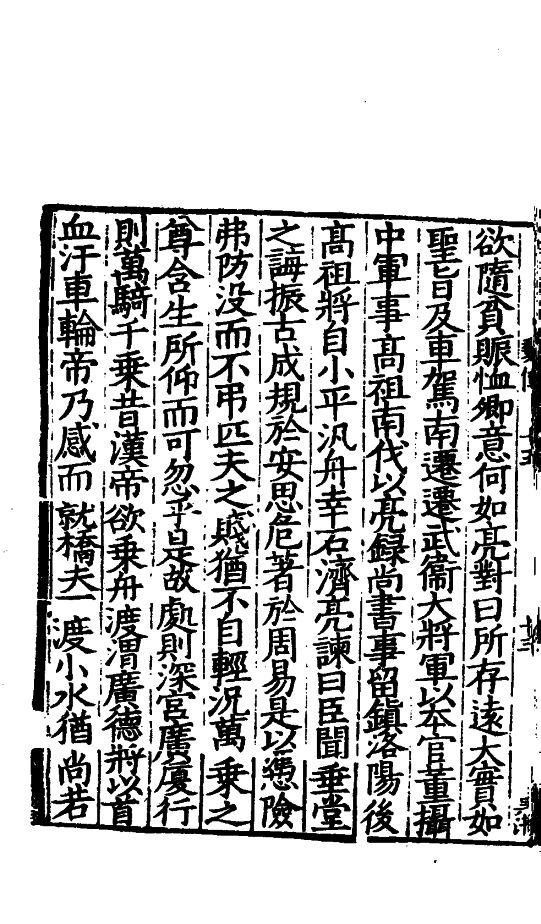 欲隨貧賑恤卿意何如亮對曰所存遠大實如
聖旨及車駕南遷遷武衞大將軍以本官董攝
中軍事髙祖南伐以亮録尚書事留鎮洛陽後
髙祖將自小平汎舟幸石濟亮諫曰臣聞垂堂
之誨振古成規於安思危著於周易是以憑險
弗防没而不弔匹夫之賤猶不自輕况萬乘之
尊含生所仰而可忽乎是故處則深宫廣厦行
則萬騎千乘昔漢帝欲乘舟渡渭廣德將以首
血汙車輪帝乃感而就橋夫一度小水猶尚若